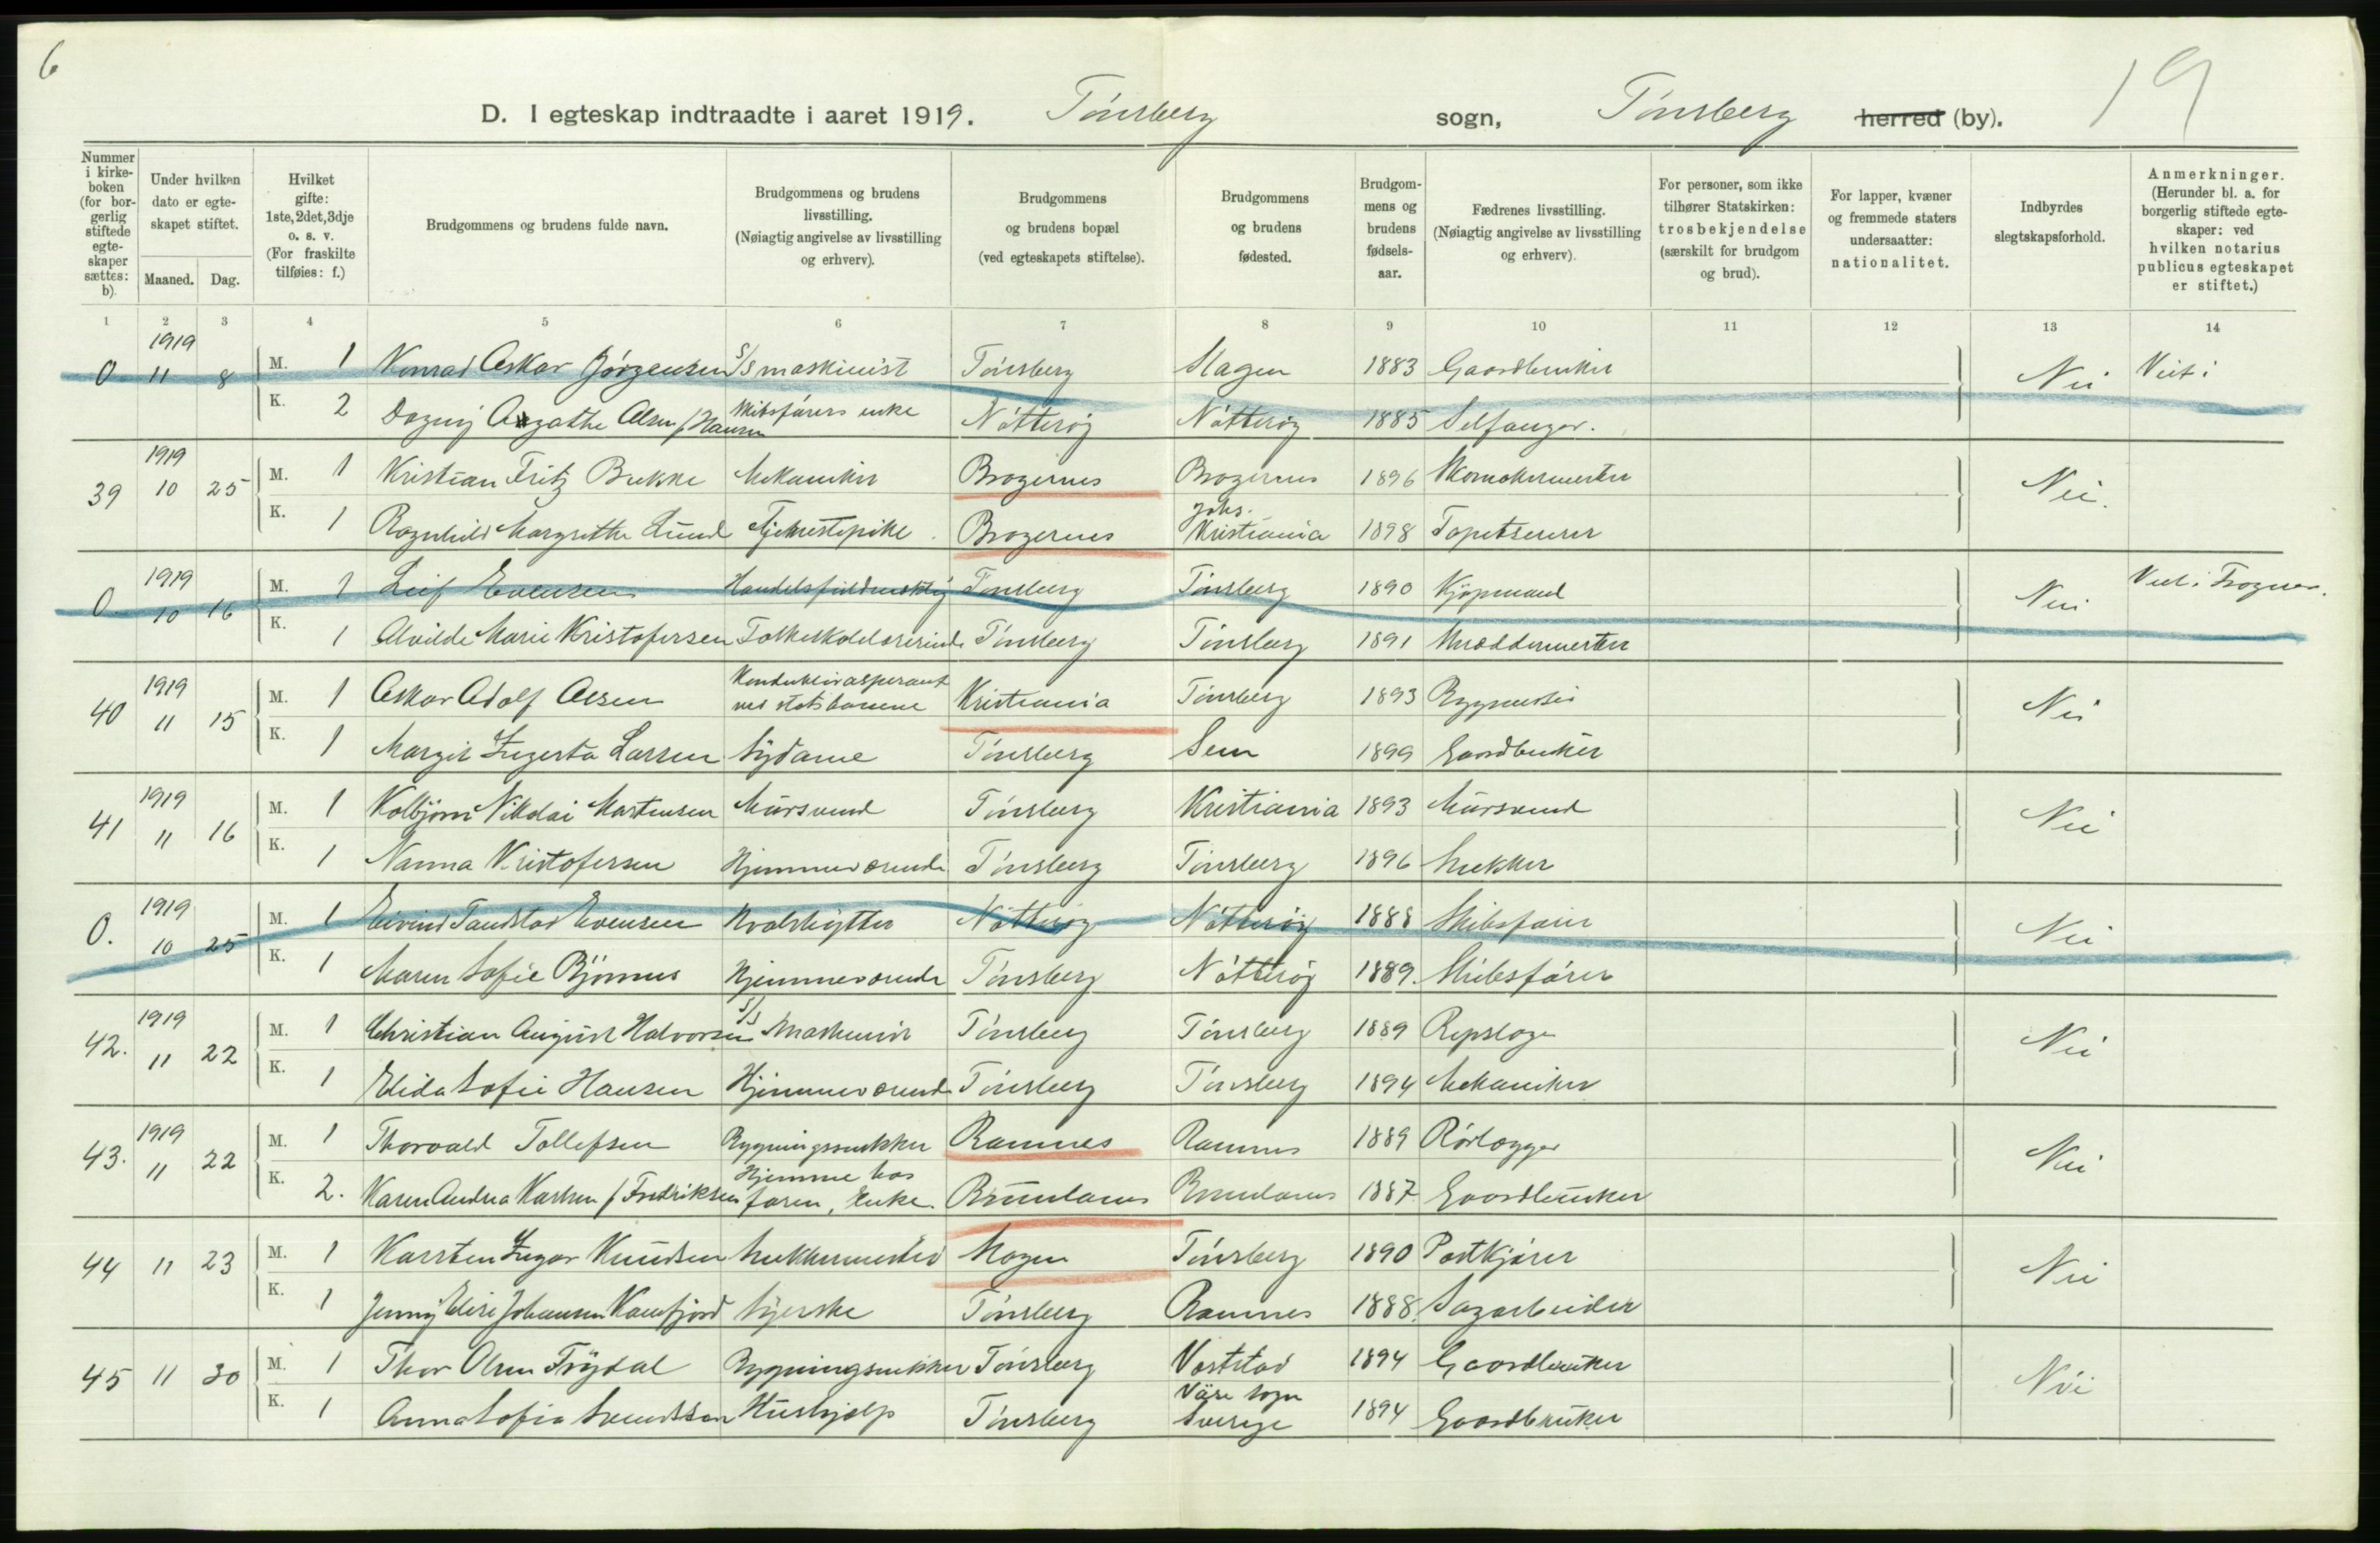 6
19
D. I egteskap indtraadte i aaret 1919. Tønsberg sogn, Tønsberg herred (by).
Nummer i kirkeboken (for borgerlig stiftede egteskaper sættes: b).
Under hvilken dato er egteskapet stiftet.
Maaned. Dag.
Hvilket gifte: 1ste, 2det, 3dje o. s. v. (For fraskilte tilføies: f.)
Brudgommens og brudens fulde navn.
Brudgommens og brudens livsstilling. (Nøiagtig angivelse av livsstilling og erhverv).
Brudgommens og brudens bopæl (ved egteskapets stiftelse).
Brudgommens og brudens fødested.
Brudgommens og brudens fødselsaar.
Fædrenes livsstilling. (Nøiagtig angivelse av livsstilling og erhverv).
For personer, som ikke tilhører Statskirken: trosbekjendelse (særskilt for brudgom og brud).
For lapper, kvæner og fremmede staters undersaatter: nationalitet.
Indbyrdes slegtskapsforhold.
Anmerkninger. (Herunder bl. a. for borgerlig stiftede egteskaper: ved hvilken notarius publicus egteskapet er stiftet.)
1 2 3 4 5 6 7 8 9 10 11 12 13 14
1919
0 11 8 M. 1 Konrad Oskar Jörgensen S/S maskinist Tönsberg Slagen 1883 Gaardbruker Nei Viet i
K. 2 Dagny Agathe Olsen f. Hansen Skibsförers enke Nötteröy Nötteröy 1885 Selfanger.
1919
39 10 25 M. 1 Kristian Fritz Bukke Mekaniker Bragernes Bragernes 1896 Skomakermester Nei.
K. 1 Ragnhild Margrethe Lund Tjenestepike Bragernes Johs. Kristiania 1898 Tapetserer
1919
0. 10 16 M. 1 Leif Evensen Tönsberg Tönsberg 1890 Kjöpmand Nei Viet i Frogner.
K. 1 Alvilde Marie Kristofersen Folkeskolelærerinde Tönsberg Tönsberg 1891 Skræddermester
1919
40 11 15 M. 1 Oskar Adolf Olsen Konduktöraspirant ved statsbanene Kristiania Tönsberg 1893 Nei
K. 1 Margit Ingerta Larsen Sydame Tönsberg Sem 1899 Gaardbruker
1919
41 11 16 M. 1 Kolbjörn Nikolai Martensen Mursvend Tönsberg Kristiania 1893 Mursvend Nei
K. 1 Nanna Kristofersen Hjemmeværende Tönsberg Tönsberg 1896 Snekker
1919
0. 10 25 M. 1 Eivind Tandstad Evensen Hvalskytter Nötteröy Nötteröy 1888 Skibsförer Nei
K. 1 Maren Sofie Björnnes Hjemmeværende Tönsberg Nötteröy 1889. Skibsförer
1919
42. 11 22 M. 1 Christian August Halvorsen S/S Maskinist Tönsberg Tönsberg 1889 Repslager Nei
K. 1 Elida Sofie Hansen Hjemmeværende Tönsberg Tönsberg 1894 Mekaniker
1919
43. 11 22 M. 1 Thorvald Tollefsen Bygningssnekker Ramnes Ramnes 1889 Rörlægger Nei
K. 2. Karen Andrea Karlsen f. Fredriksen Hjemme hos faren, Enke. Brunlanes Brunlanes 1887 Gaardbruker
44 11 23 M. 1 Karsten Ingar Knudsen Snekkermester Slagen Tönsberg 1890 Postkjörer Nei
K. 1 Jenny Elise Johansen Kaufjord Syerske Tönsberg Ramnes 1888. Sagarbeider
45 11 30 M. 1 Thor Olsen Tröydal Bygningsnekker Tönsberg Vartstad 1894 Gaardbruker Nei
K. 1 Anna Sofia Svendssen Hushjælp Tönsberg Väse sogn Sverige 1894 Gaardbruker